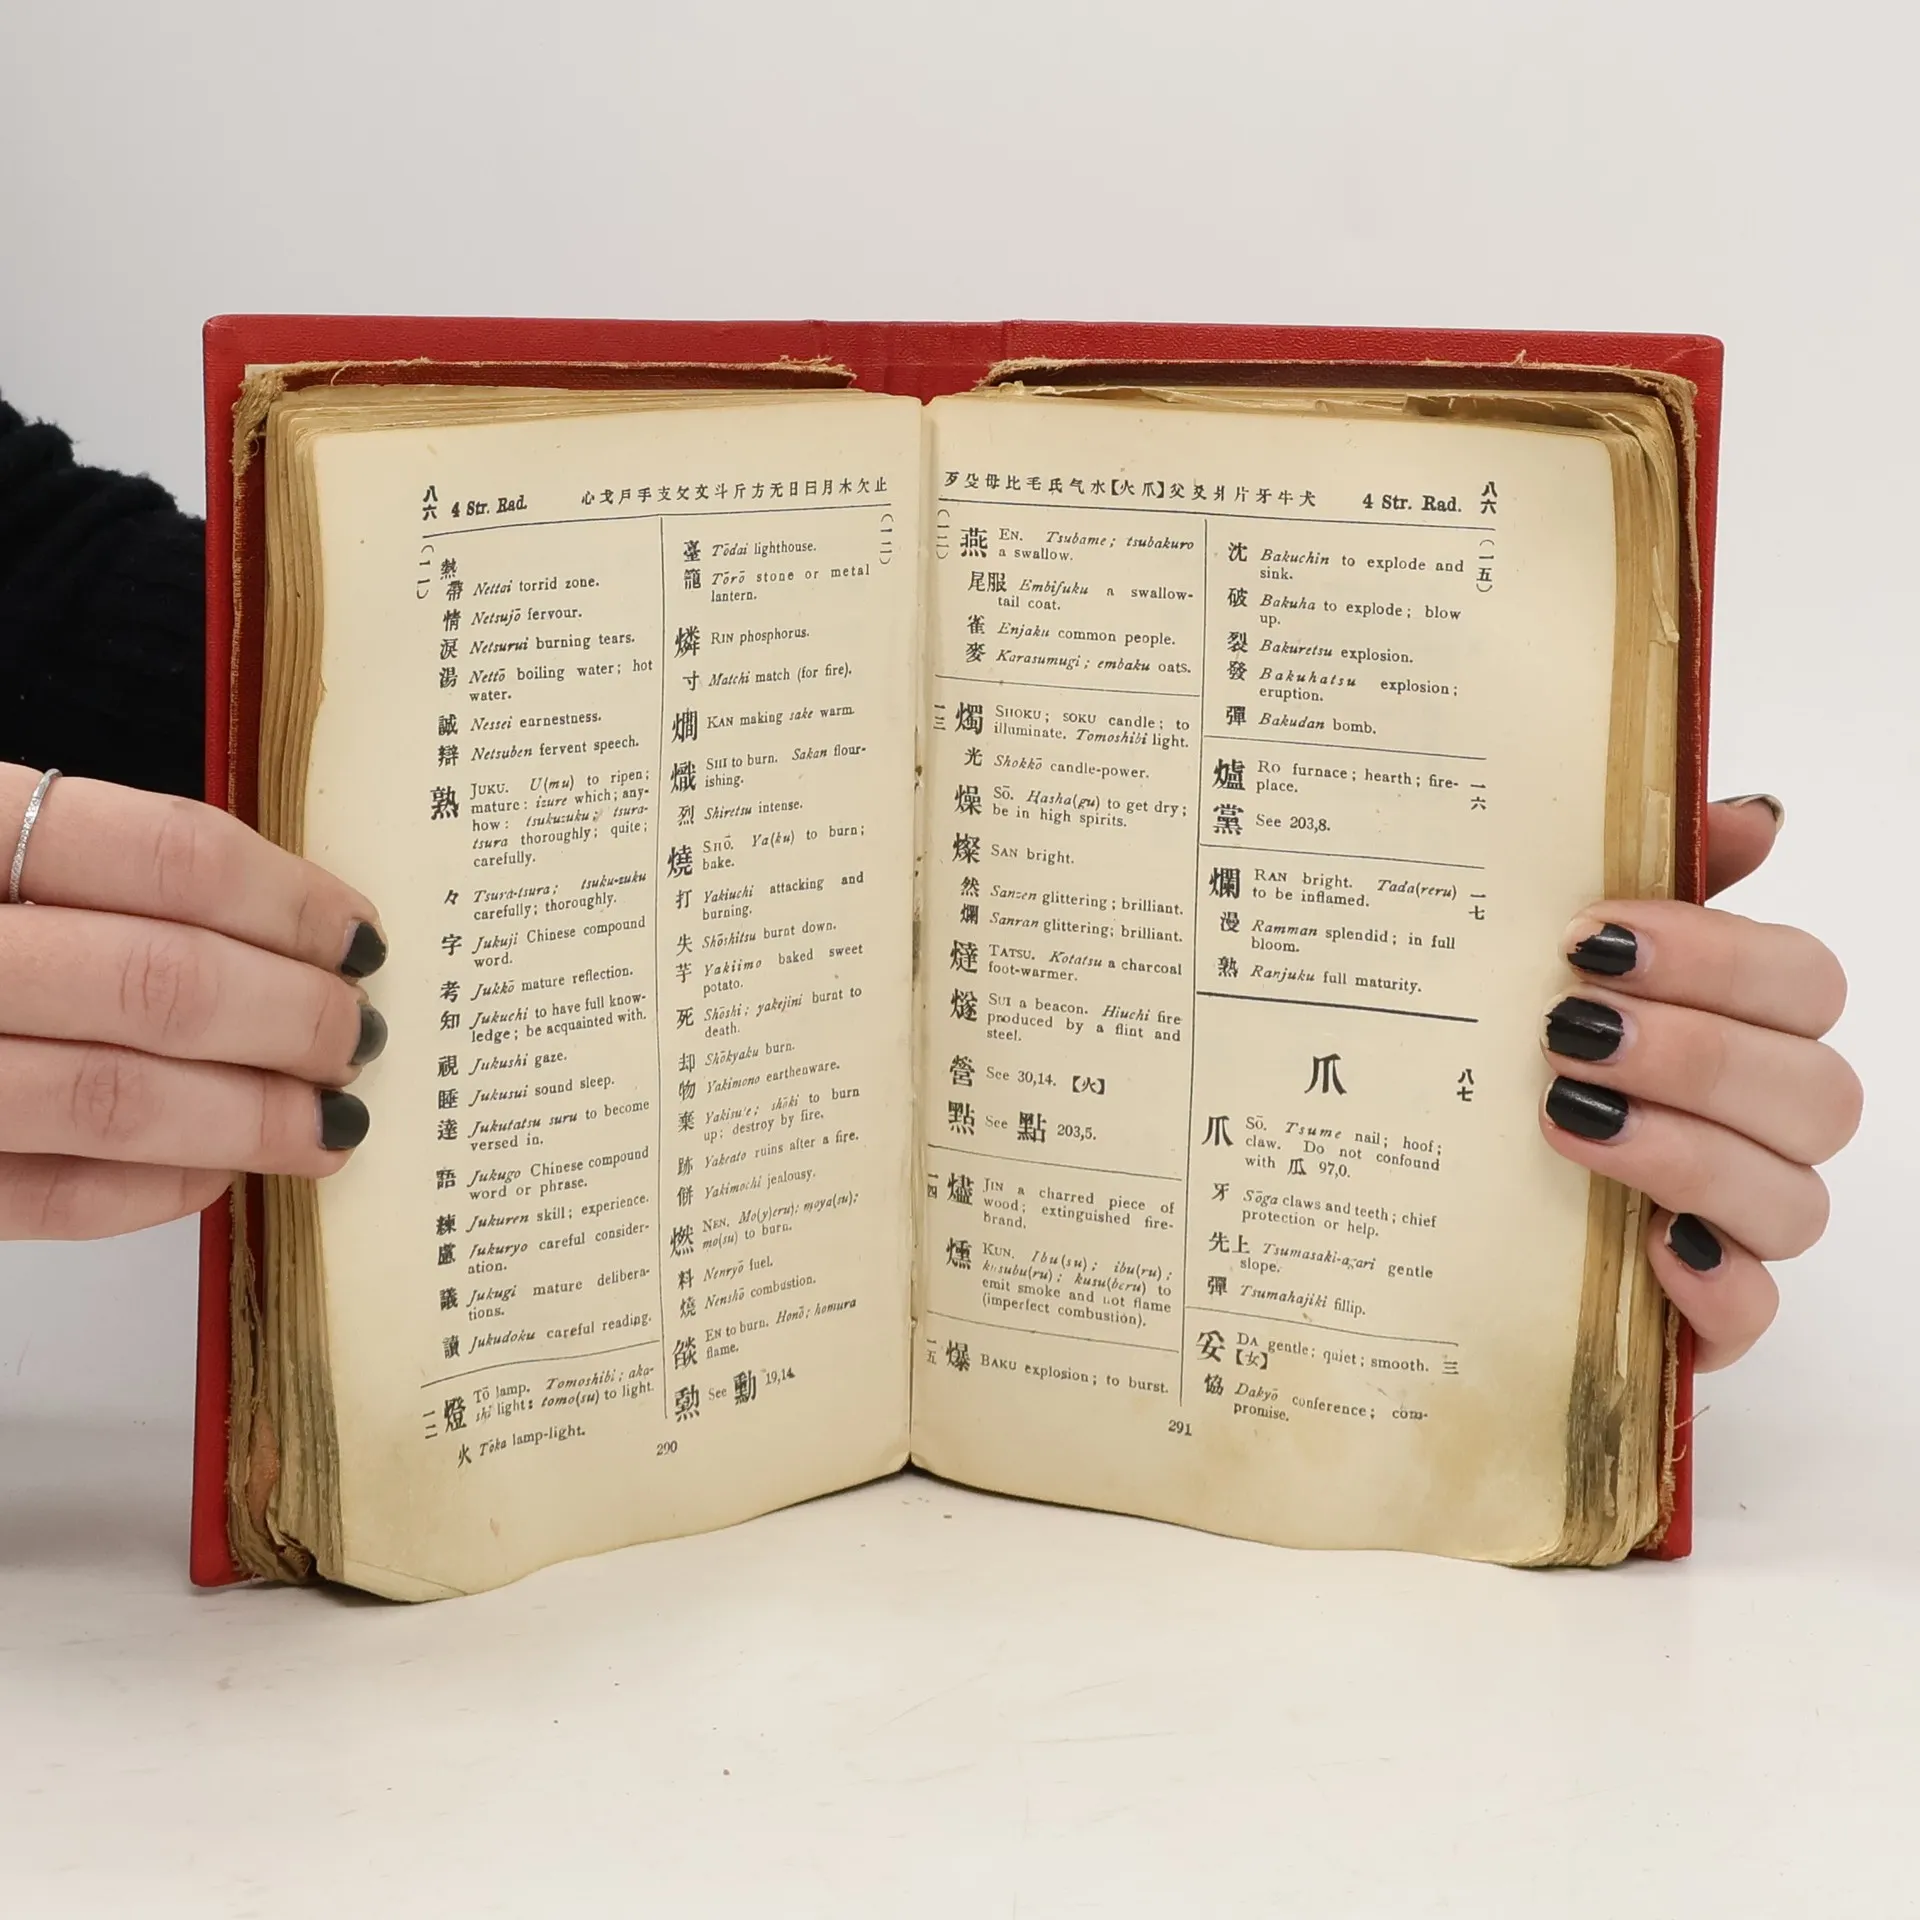 八六 4 Str. Rad. 心戈戶手支攴文斗斤方无日曰月木欠止
(一一)
熱
帶 Nettai torrid zone.
情 Netsujō fervour.
淚 Netsurui burning tears.
湯 Nettō boiling water; hot
water.
誠 Nessei earnestness.
辯 Netsuben fervent speech.
熟 JUKU. U(mu) to ripen;
mature: izure which; any-
how: tsukuzuku; tsura-
tsura thoroughly; quite;
carefully.
々 Tsura-tsura; tsuku-zuku
carefully; thoroughly.
字 Jukuji Chinese compound
word.
考 Jukkō mature reflection.
知 Jukuchi to have full know-
ledge; be acquainted with.
視 Jukushi gaze.
睡 Jukusui sound sleep.
達 Jukutatsu suru to become
versed in.
語 Jukugo Chinese compound
word or phrase.
練 Jukuren skill; experience.
慮 Jukuryo careful consider-
ation.
議 Jukugi mature delibera-
tions.
讀 Jukudoku careful reading.
一二 燈 TŌ lamp. Tomoshibi; aka-
shi light: tomo(su) to light.
火 Tōka lamp-light.
(一二)
臺 Tōdai lighthouse.
籠 Tōrō stone or metal
lantern.
燐 RIN phosphorus.
寸 Matchi match (for fire).
燗 KAN making sake warm.
熾 SHI to burn. Sakan flour-
ishing.
烈 Shiretsu intense.
燒 SHŌ. Ya(ku) to burn;
bake.
打 Yakiuchi attacking and
burning.
失 Shōshitsu burnt down.
芋 Yakiimo baked sweet
potato.
死 Shōshi; yakejini burnt to
death.
却 Shōkyaku burn.
物 Yakimono earthenware.
棄 Yakisute; shōki to burn
up; destroy by fire.
跡 Yakeato ruins after a fire.
餅 Yakimochi jealousy.
燃 NEN. Mo(y)eru); moya(su);
mo(su) to burn.
料 Nenryō fuel.
燒 Nenshō combustion.
燄 EN to burn. Honō; homura
flame.
勲 See 勳 19,14.
290
歹殳毋比毛氏气水【火爪】父爻爿片牙牛犬 4 Str. Rad. 八六
(一二)
燕 EN. Tsubame; tsubakuro
a swallow.
尾服 Embifuku a swallow-
tail coat.
雀 Enjaku common people.
麥 Karasumugi; embaku oats.
一三 燭 SHOKU; SOKU candle; to
illuminate. Tomoshibi light.
光 Shokkō candle-power.
燥 SŌ. Hasha(gu) to get dry;
be in high spirits.
燦 SAN bright.
然 Sanzen glittering; brilliant.
爛 Sanran glittering; brilliant.
燵 TATSU. Kotatsu a charcoal
foot-warmer.
燧 SUI a beacon. Hiuchi fire
produced by a flint and
steel.
營 See 30,14. 【火】
點 See 點 203,5.
一四 燼 JIN a charred piece of
wood; extinguished fire-
brand.
燻 KUN. Ibu(su); ibu(ru);
kusubu(ru); kusu(beru) to
emit smoke and not flame
(imperfect combustion).
一五 爆 BAKU explosion; to burst.
(一五)
沈 Bakuchin to explode and
sink.
破 Bakuha to explode; blow
up.
裂 Bakuretsu explosion.
發 Bakuhatsu explosion;
eruption.
彈 Bakudan bomb.
爐 RO furnace; hearth; fire-
place. 一六
黨 See 203,8.
爛 RAN bright. Tada(reru)
to be inflamed. 一七
漫 Ramman splendid; in full
bloom.
熟 Ranjuku full maturity.
爪 八七
爪 SŌ. Tsume nail; hoof;
claw. Do not confound
with 瓜 97,0.
牙 Sōga claws and teeth; chief
protection or help.
先上 Tsumasaki-agari gentle
slope.
彈 Tsumahajiki fillip.
妥 DA gentle; quiet; smooth. 三
【女】
協 Dakyō conference; com-
promise.
291